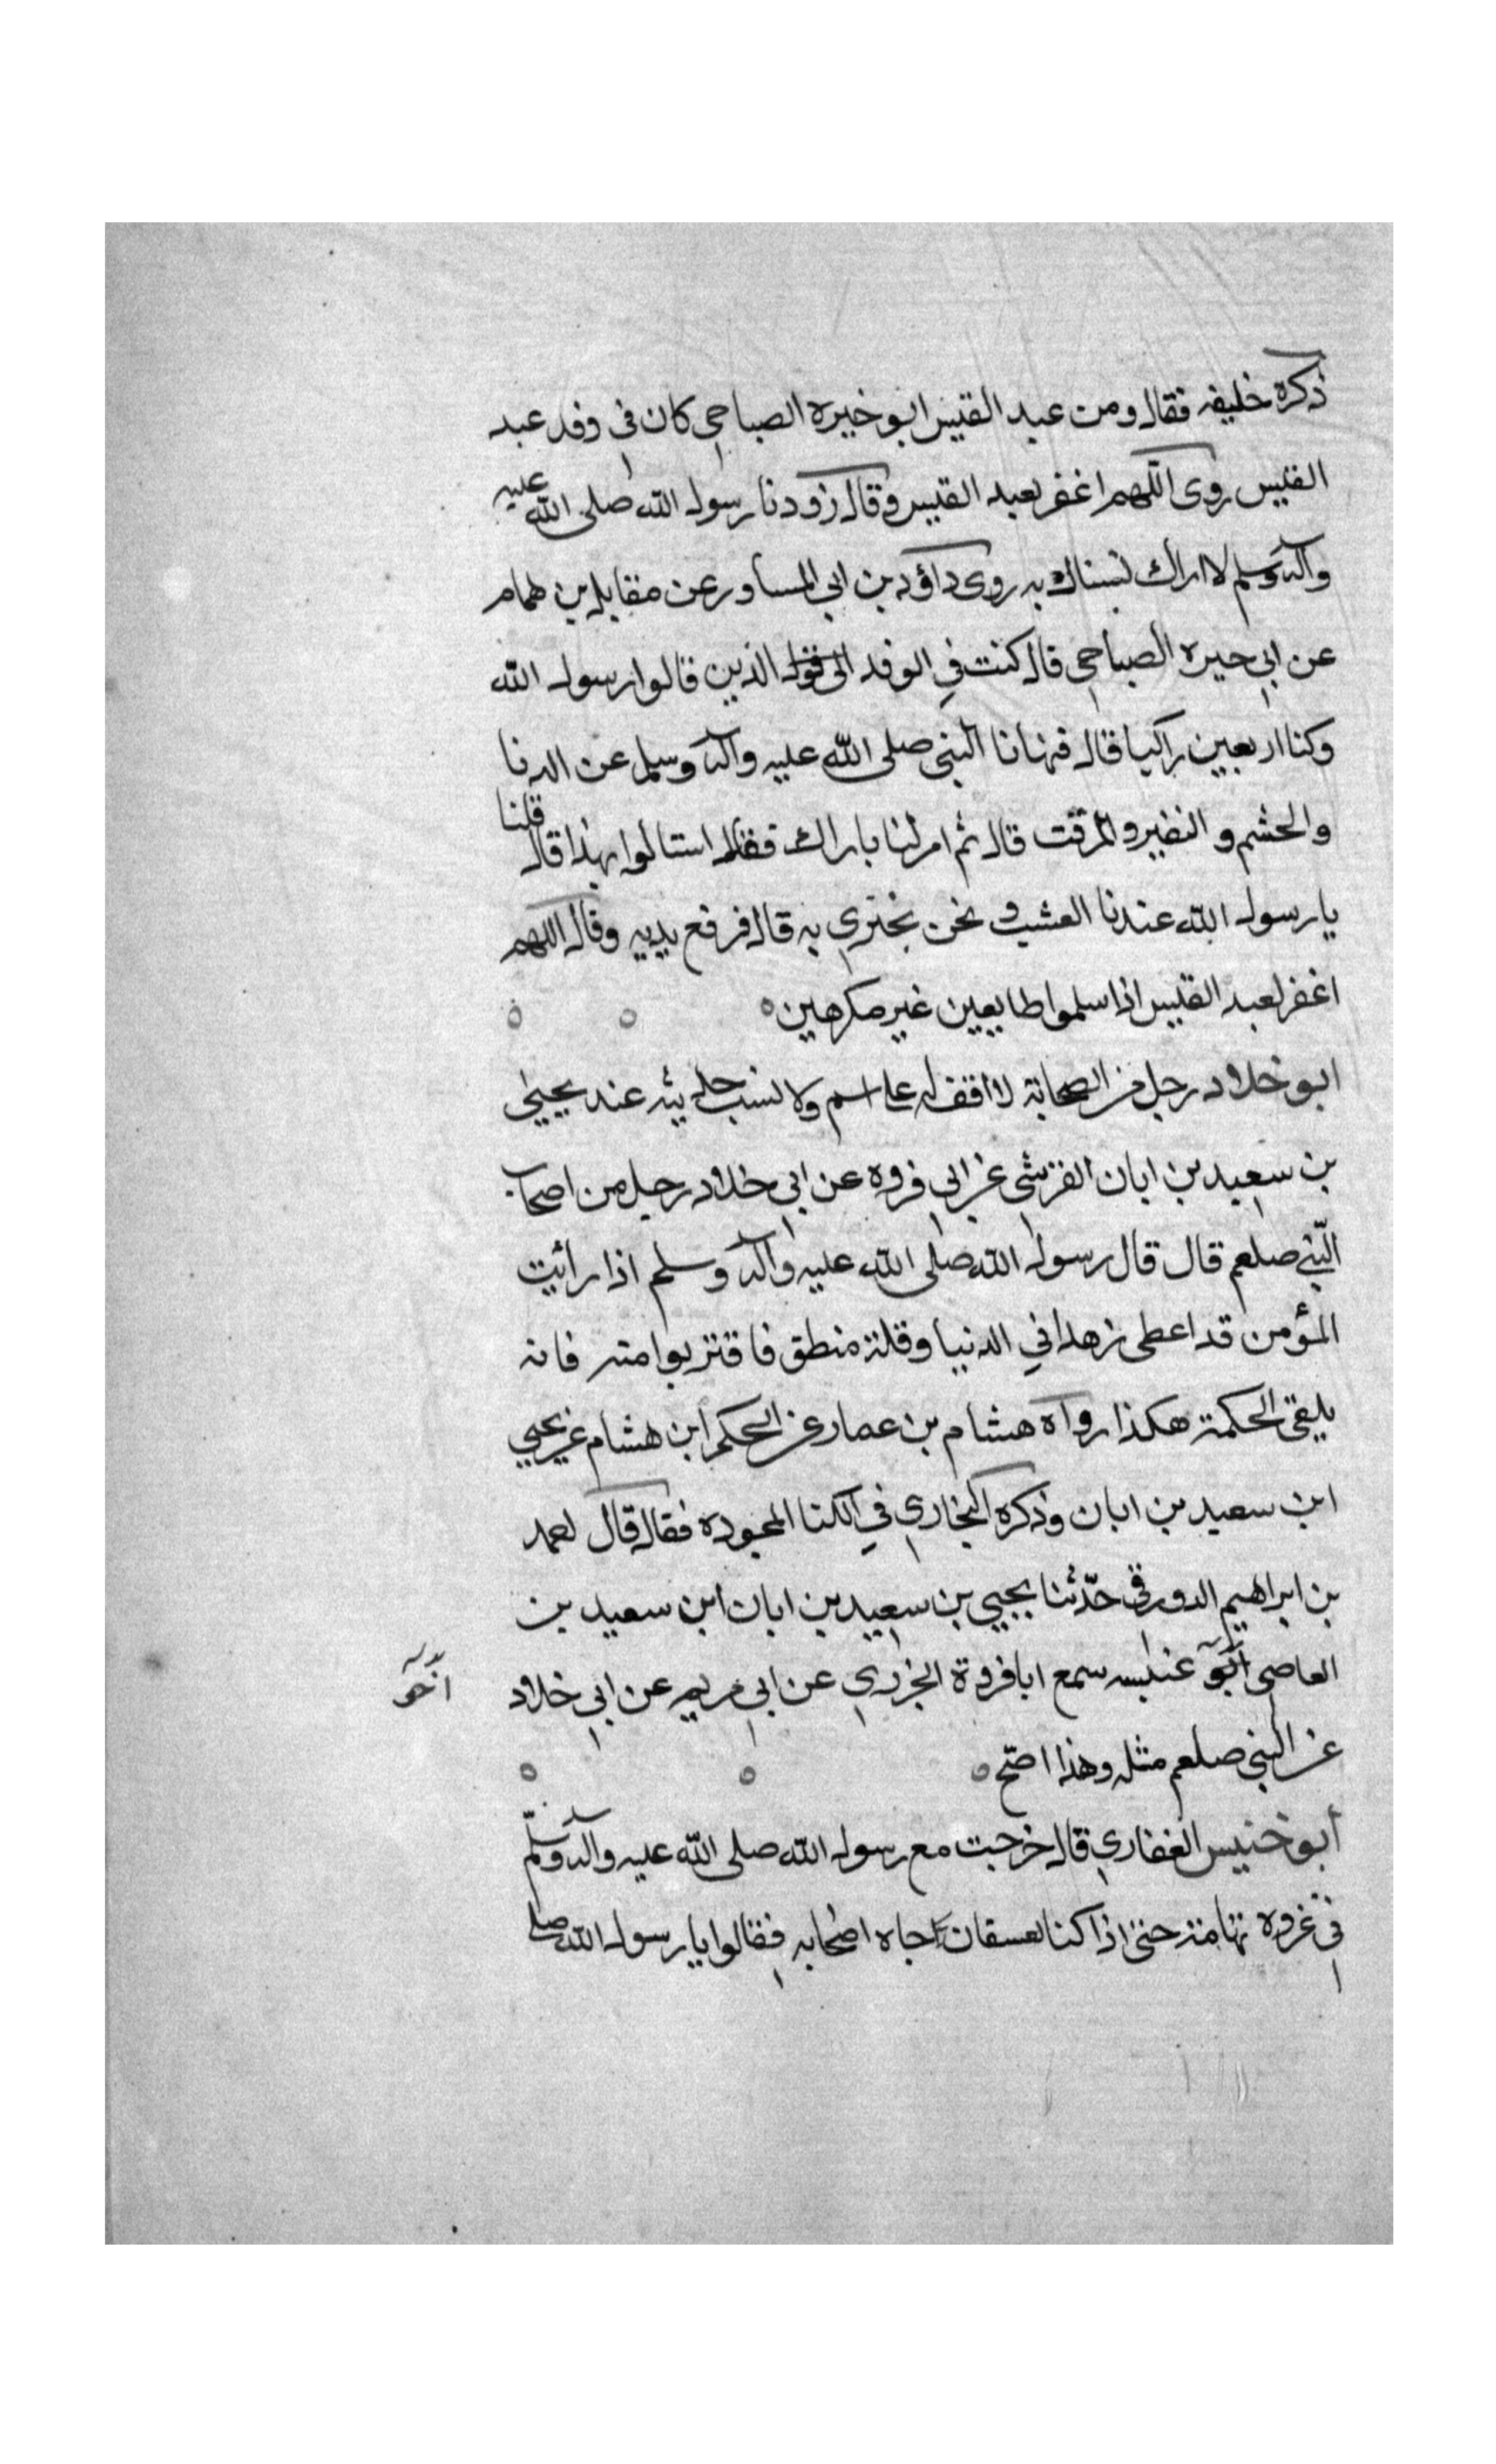 ذكره خليفه فقال ومن عبد القيس ابو خيره الصباحي كان في وفد عبد
القيس روى اللهم اغفر لعبد القيس وقال زودنا رسول الله صلى الله عليه
وآله وسلم لااراك نستاك به روى داؤد بن ابي المساور عن مقابل بن همام
عن ابي حيره الصباحي قال كنت في الوفد الذين قالوا رسول الله
وكنا اربعين راكبا قال فنهانا النبي صلى الله عليه وآله وسلم عن الدنا
والحشم و النفير والمزقت قال ثم امر لنا باراك فقال استالوا بهذا قال قلنا
يا رسول الله عندنا العشب و نحن نجتزي به قال فرفع يديه وقال اللهم
اغفر لعبد القيس اذا سلموا طايعين غير مكرهين
ابو خلاد رجل من الصحابة لا اقف له على اسم ولا نسب حديثه عند يحيى
بن سعيد بن ابان القرشي عن ابي فروه عن ابي خلاد رجل من اصحاب
النبي صلعم قال قال رسول الله صلى الله عليه وآله وسلم اذا رأيت
المؤمن قد اعطى زهدا في الدنيا وقلة منطق فاقتربوا منه فانه
يلقي الحكمة هكذا رواه هشام بن عمار عن الحكم ابن هشام عن يحيى
ابن سعيد بن ابان وذكره البخاري في الكنا المجوده فقال قال لعمد
بن ابراهيم الدورقي حدّثنا يحيى بن سعيد بن ابان ابن سعيد بن
العاصي ابو عنبسه سمع ابا فروة الجزري عن ابي مريم عن ابي خلاد
عن النبي صلعم مثله وهذا اصح
أبو خنيس الغفاري قال خرجت مع رسول الله صلى الله عليه وآله وسلّم
في غزوه تهامة حتى اذا كنا بعسقان جاه اصحابه فقالوا يا رسول الله صلى